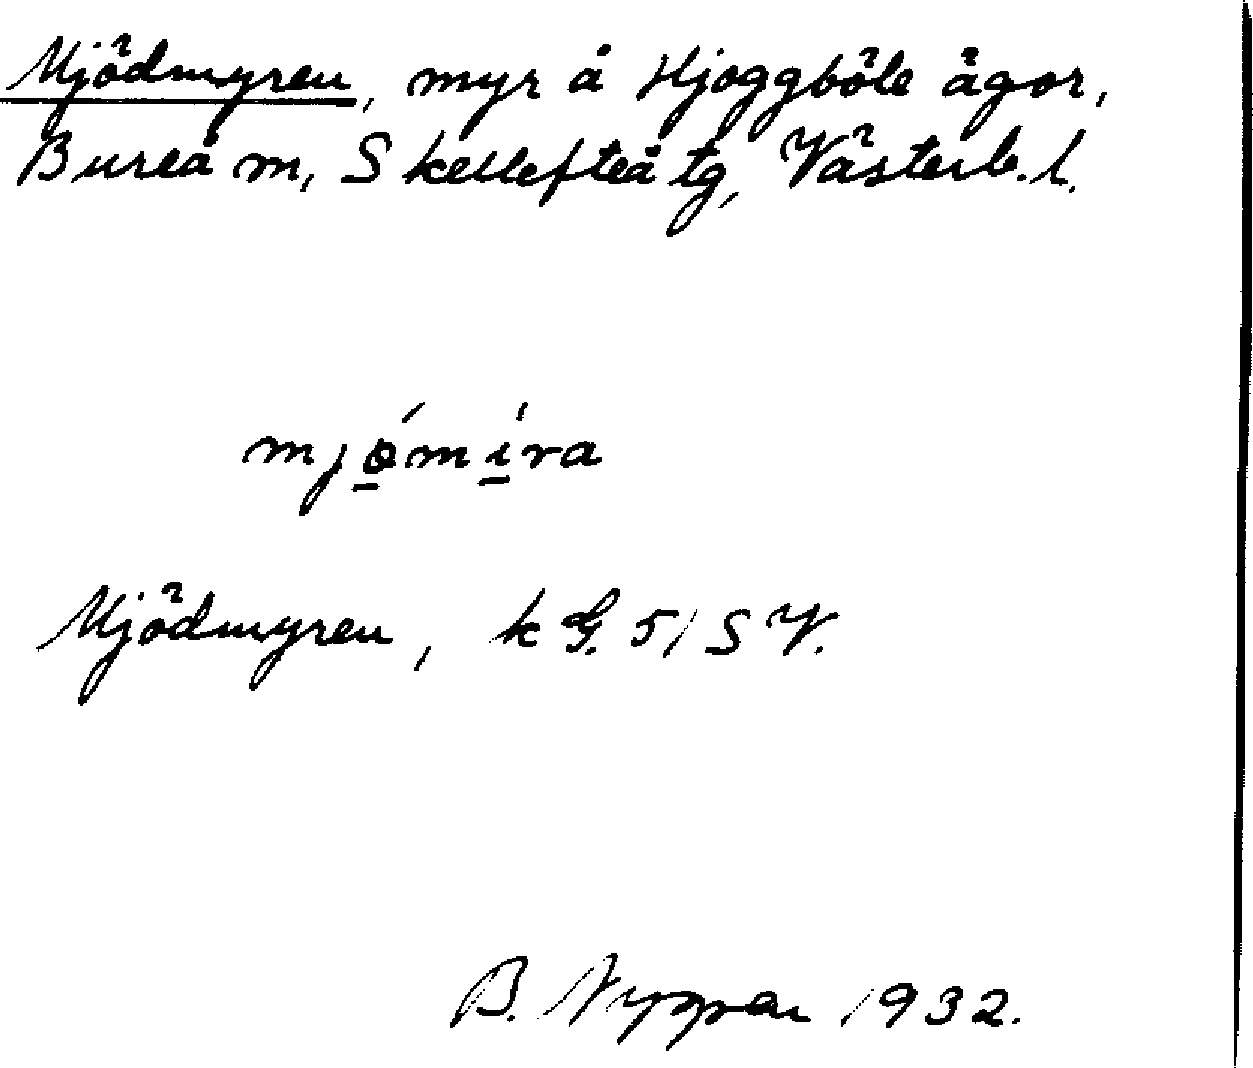 Mjödmyren, myr å Hjoggböle ägor,
Bureå m, Skellefteå tg, Västerb. l.
mjǿmìra
Mjödmyren, k G. 51 SV.
B. 1932.